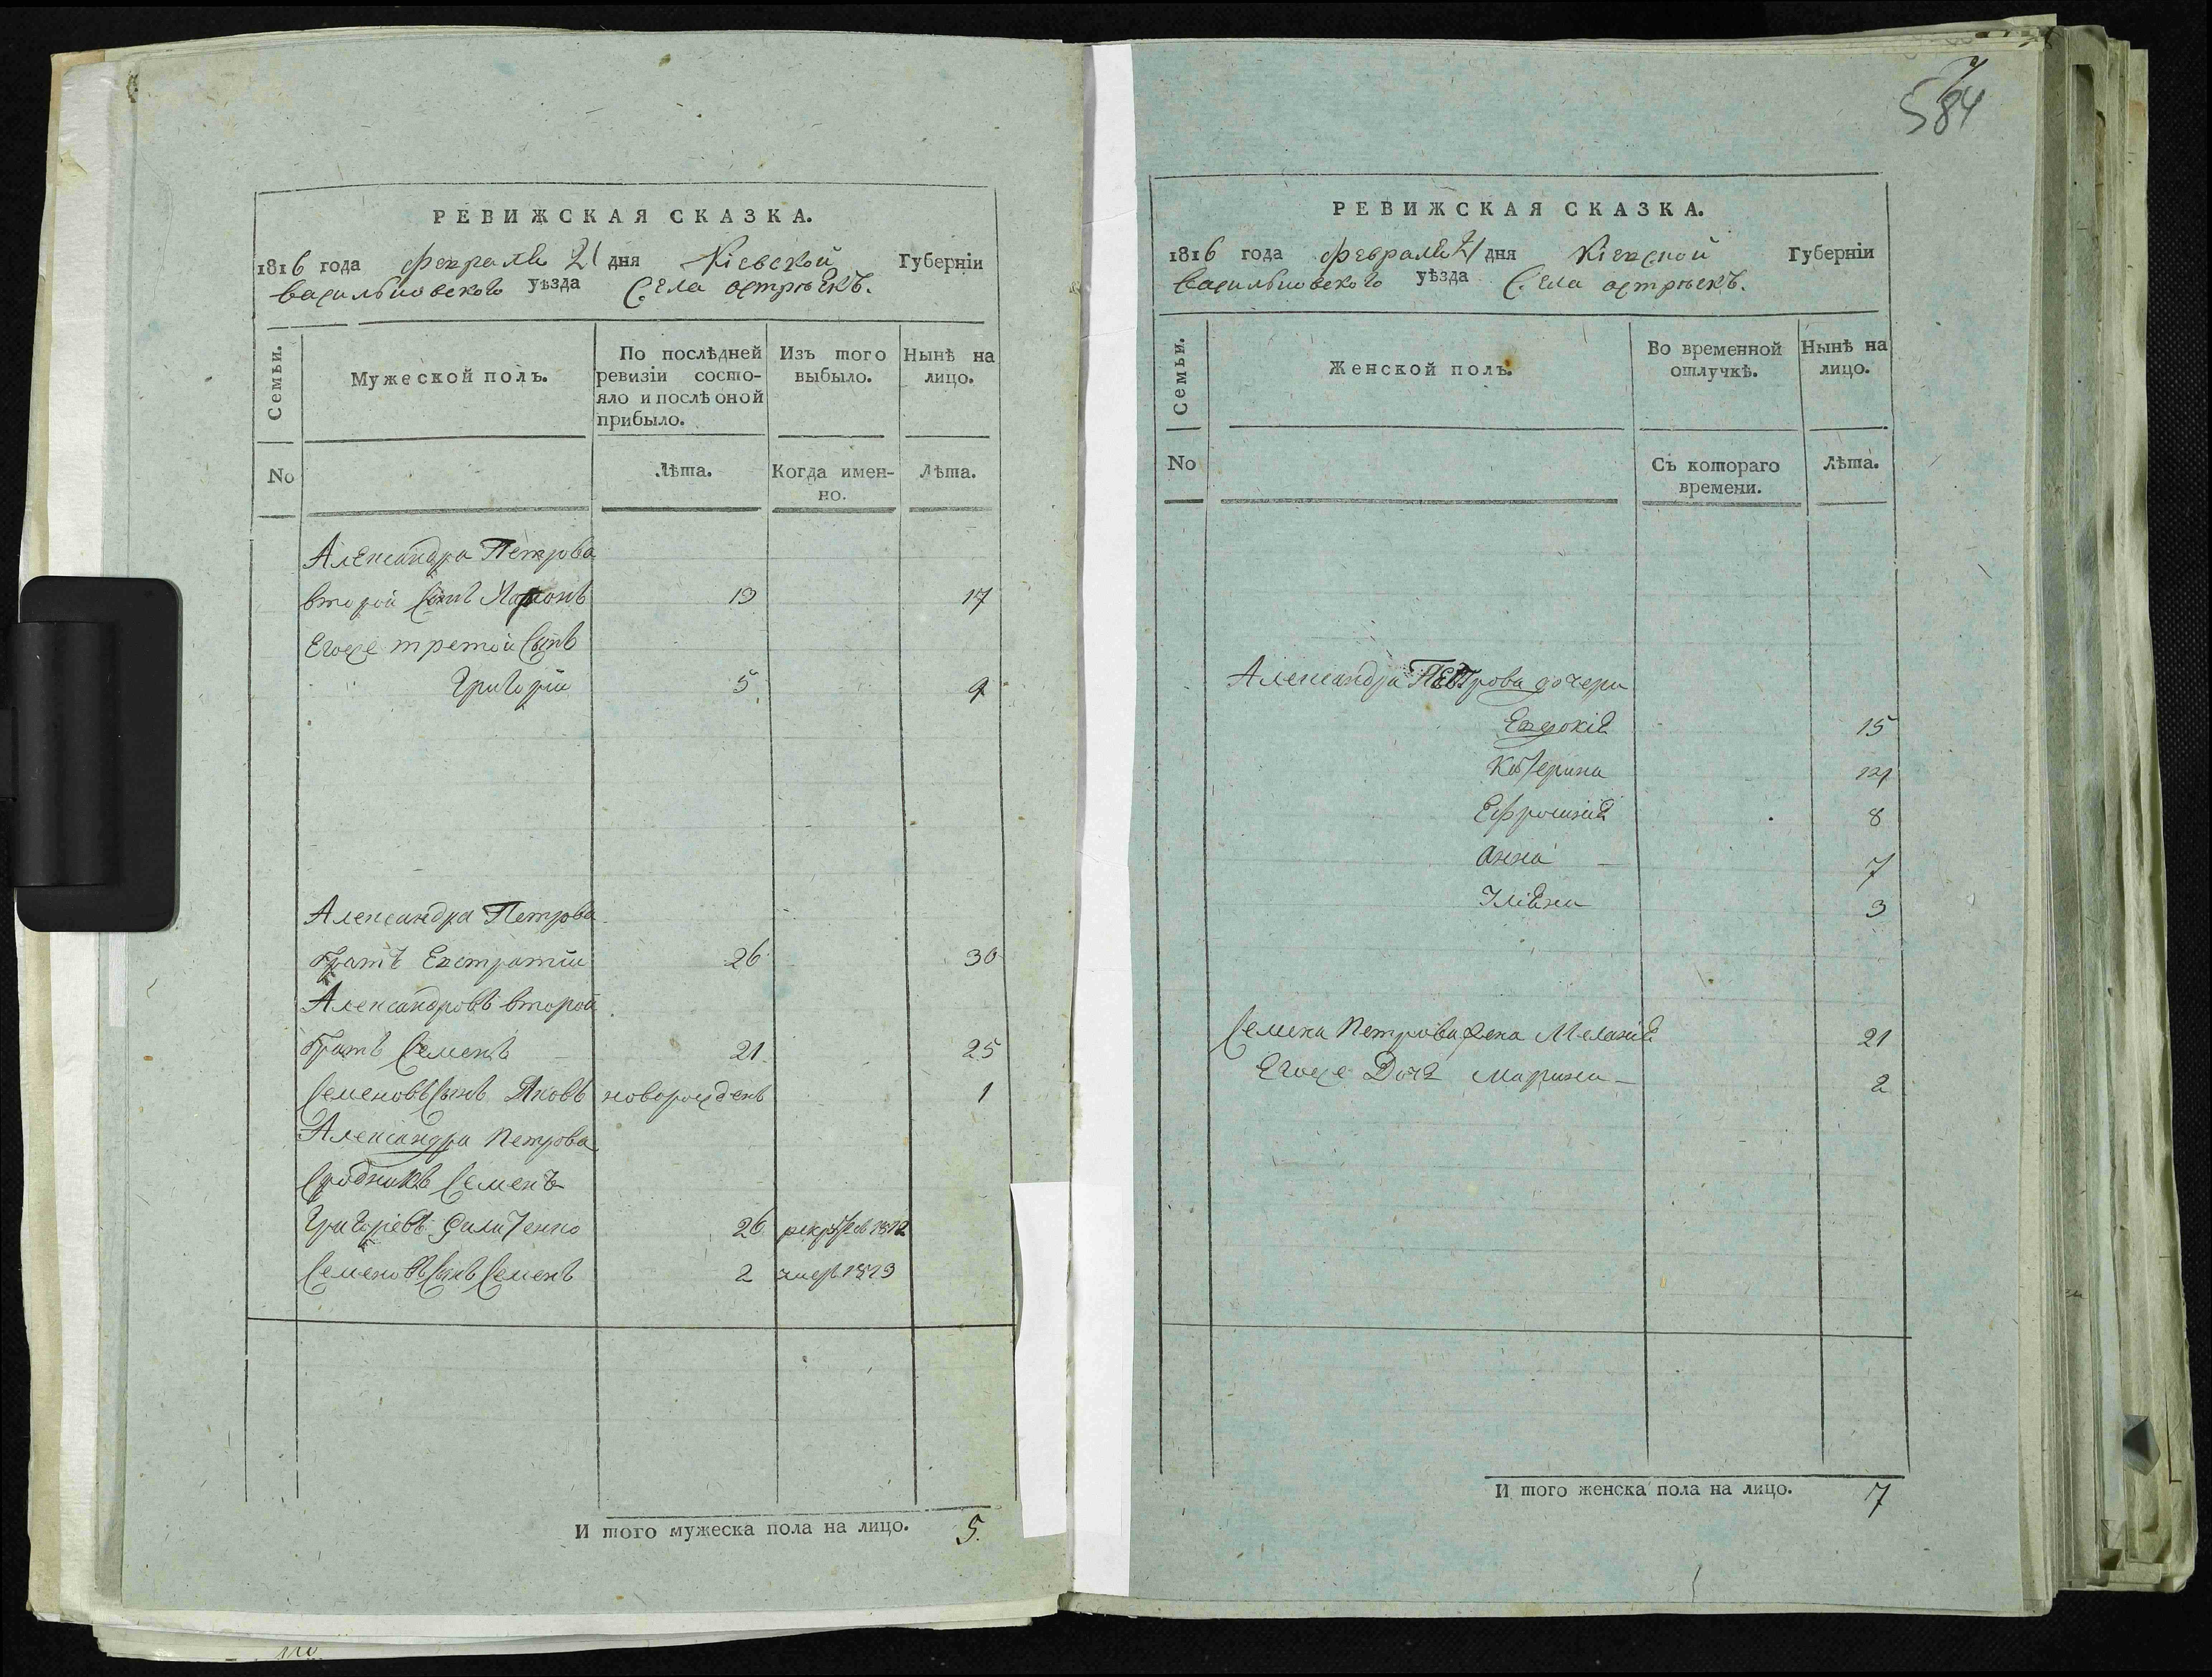 РЕВИЖСКАЯ СКАЗКА.
1816 года февраля 21 дня Кіевской Губерніи
васильковского уѣзда Села острѣекъ.
Семьи.
Мужеской полъ.
По послѣдней ревизіи состо-
яло и послѣ оной
прибыло.
Изъ того
выбыло.
Нынѣ на
лицо.
No
Лѣта.
Когда имен-
но.
Лѣта.
Александра Петрова
второй Сынъ 13 17
Егоже третой Сынъ
Григорій 5 9
Александра Петрова
братъ Евстратій 26 30
Александровъ второй
братъ Семенъ 21 25
Семеновъ Сынъ Яковъ новорожденъ 1
Александра Петрова
Сродникъ Семенъ
Григоріевъ 26 1812
Семеновъ Сынъ Семенъ 2 умеръ 1813
И того мужеска пола на лицо. 5.
584
7
РЕВИЖСКАЯ СКАЗКА.
1816 года февраля 21 дня Кіевской Губерніи
васильковского уѣзда Села острѣекъ.
Семьи.
Женской полъ.
Во временной
отлучкѣ.
Нынѣ на
лицо.
No
Съ котораго
времени.
Лѣта.
Александра Петрова дочери
Евдокія 15
Катерина
Ефросинія 8
Анна 7
Уліяна 3
Семена Петрова жена Меланія 21
Егоже Дочь Марина 2
И того женска пола на лицо. 7